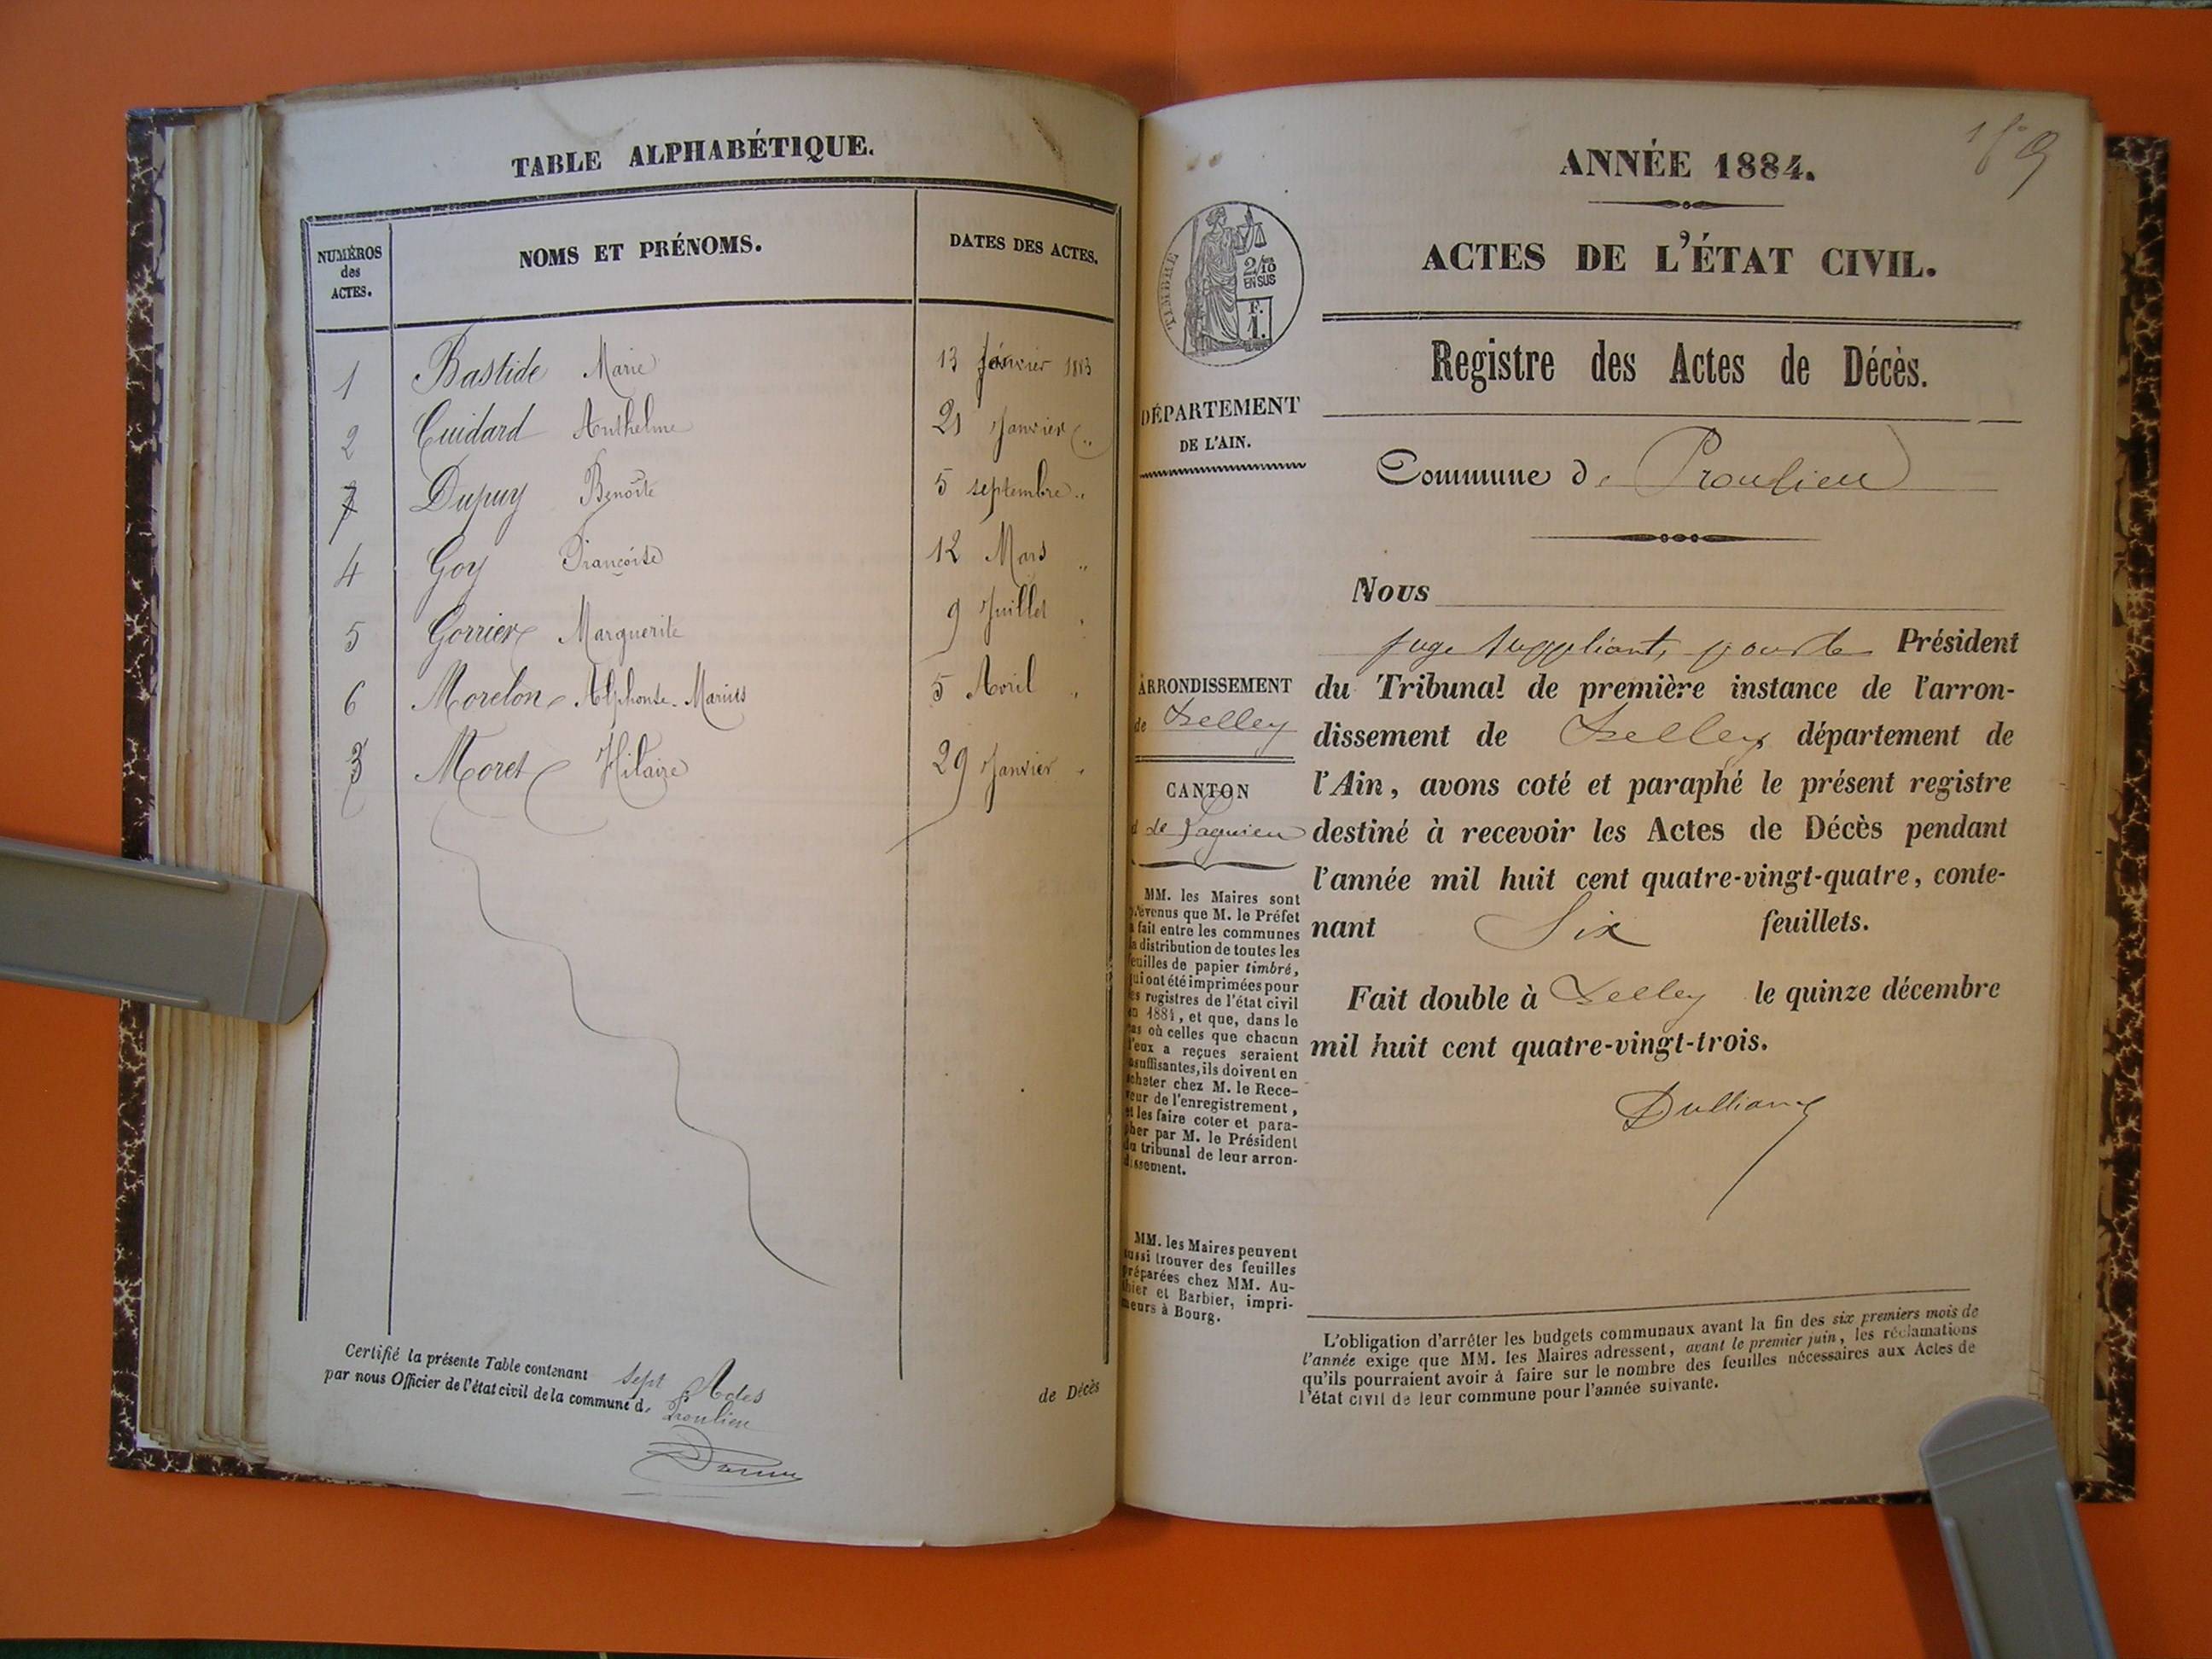 TABLE ALPHABÉTIQUE.
NUMÉROS des ACTES.
NOMS ET PRÉNOMS.
DATES DES ACTES.
1 Bastide Marie 13 Janvier 1883
2 Cuidard Anthelme 21 Janvier "
7 Dupuy Benoîte 5 septembre "
4 Goy Françoise 12 Mars "
5 Gorrier Marguerite 9 Juillet "
6 Morelon Alphonse-Marius 5 Avril "
3 Moret Hilaire 29 Janvier "
Certifié la présente Table contenant sept Actes de Décès
par nous Officier de l'état civil de la commune d. Proulieu
159
ANNÉE 1884.
ACTES DE L'ÉTAT CIVIL.
TIMBRE
2/10
EN SUS
F.
1.
Registre des Actes de Décès.
DÉPARTEMENT
DE L'AIN.
Commune de Proulieu
Nous
juge suppléant, pour le Président
du Tribunal de première instance de l'arron-
dissement de Belley département de
l'Ain, avons coté et paraphé le présent registre
destiné à recevoir les Actes de Décès pendant
l'année mil huit cent quatre-vingt-quatre, conte-
nant Six feuillets.
Fait double à Belley le quinze décembre
mil huit cent quatre-vingt-trois.
ARRONDISSEMENT
de Belley
CANTON
d de Lagnieu
MM. les Maires sont
prévenus que M. le Préfet
a fait entre les communes
la distribution de toutes les
feuilles de papier timbré,
qui ont été imprimées pour
les registres de l'état civil
en 1884, et que, dans le
cas où celles que chacun
d'eux a reçues seraient
insuffisantes, ils doivent en
acheter chez M. le Rece-
veur de l'enregistrement,
et les faire coter et para-
pher par M. le Président
du tribunal de leur arron-
dissement.
MM. les Maires peuvent
aussi trouver des feuilles
préparées chez MM. Au-
thier et Barbier, impri-
meurs à Bourg.
L'obligation d'arrêter les budgets communaux avant la fin des six premiers mois de
l'année exige que MM. les Maires adressent, avant le premier juin, les réclamations
qu'ils pourraient avoir à faire sur le nombre des feuilles nécessaires aux Actes de
l'état civil de leur commune pour l'année suivante.